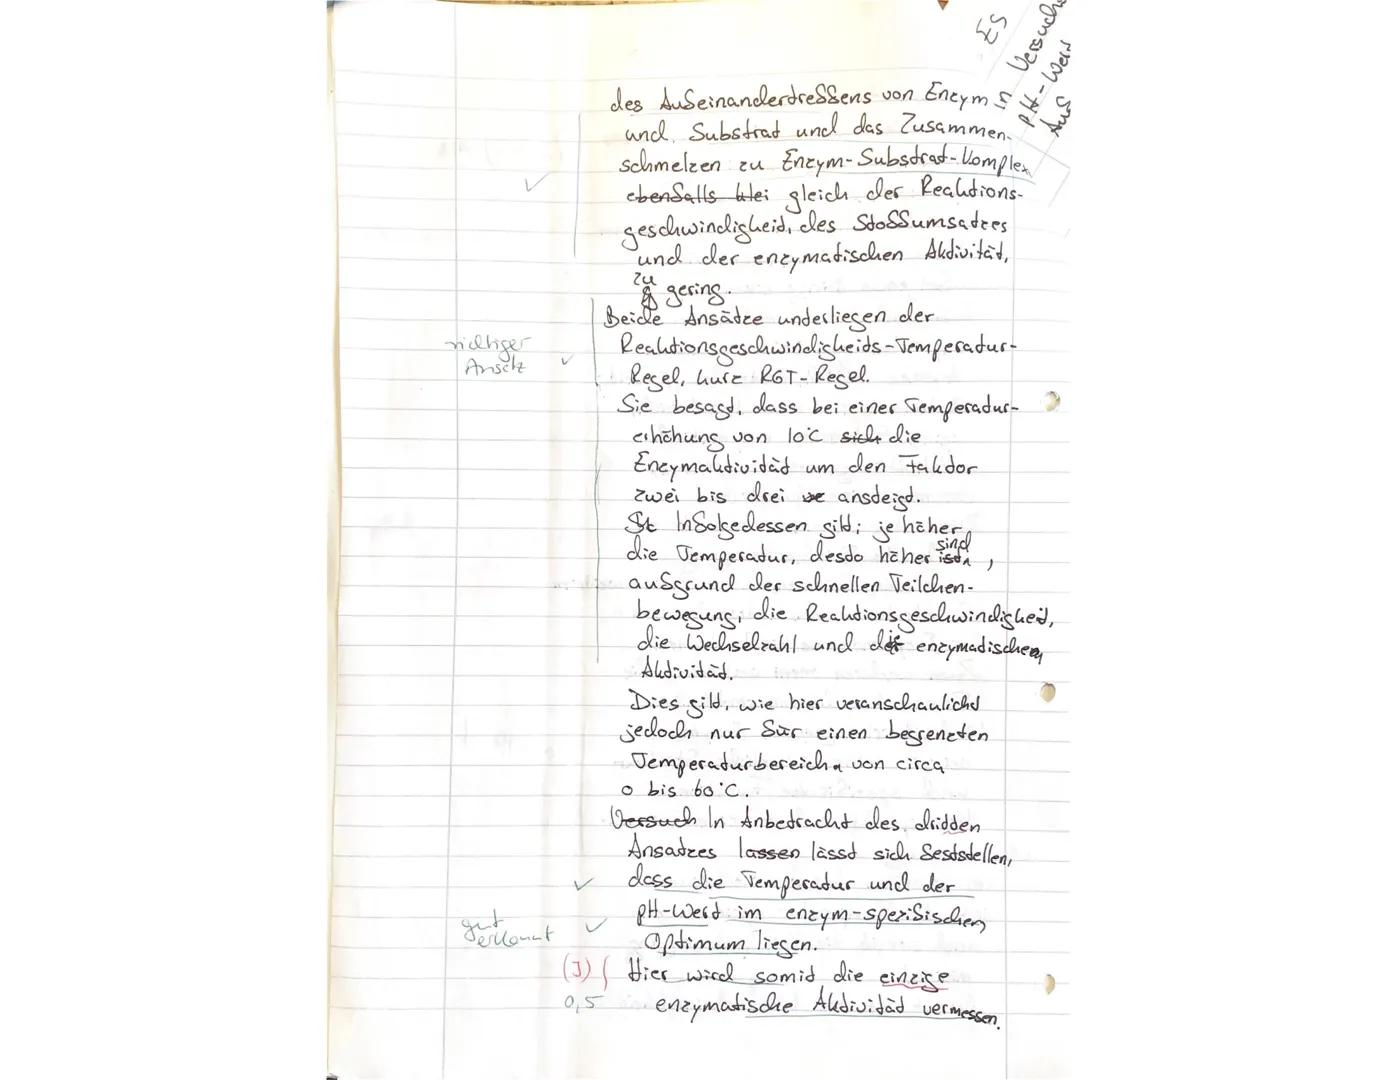 ES
in Versuch
pH-Wert
Aus
des Aufeinandertreffens von Enzym
und Substrat und das Zusammen-
schmelzen zu Enzym-Substrat-Komplex
ebenfalls blei gleich der Reaktions-
geschwindigkeit, des Stoffumsatzes
und der enzymatischen Aktivität,
zu
gering.
Beide Ansätze unterliegen der
richtiger
Reaktionsgeschwindigkeits-Temperatur-
Ansatz
Regel, kurz RGT-Regel.
Sie besagt, dass bei einer Temperatur-
erhöhung von 10°C sich die
Enzymaktivität um den Faktor
zwei bis drei ve ansteigt.
St Infolgedessen gilt; je höher
die Temperatur, desto höher ist sind,
aufgrund der schnellen Teilchen-
bewegung, die Reaktionsgeschwindigkeit,
die Wechselzahl und die enzymatischen
Aktivität.
Dies gilt, wie hier veranschaulicht
jedoch nur für einen begrenzten
Temperaturbereich von circa
0 bis 60°C.
Versuch In Anbetracht des dritten
Ansatzes lassen lässt sich feststellen,
dass die Temperatur und der
gut
pH-Wert im enzym-spezifischen
erkannt
Optimum liegen.
(I) Hier wird somit die einzige
0,5 enzymatische Aktivität vermessen.